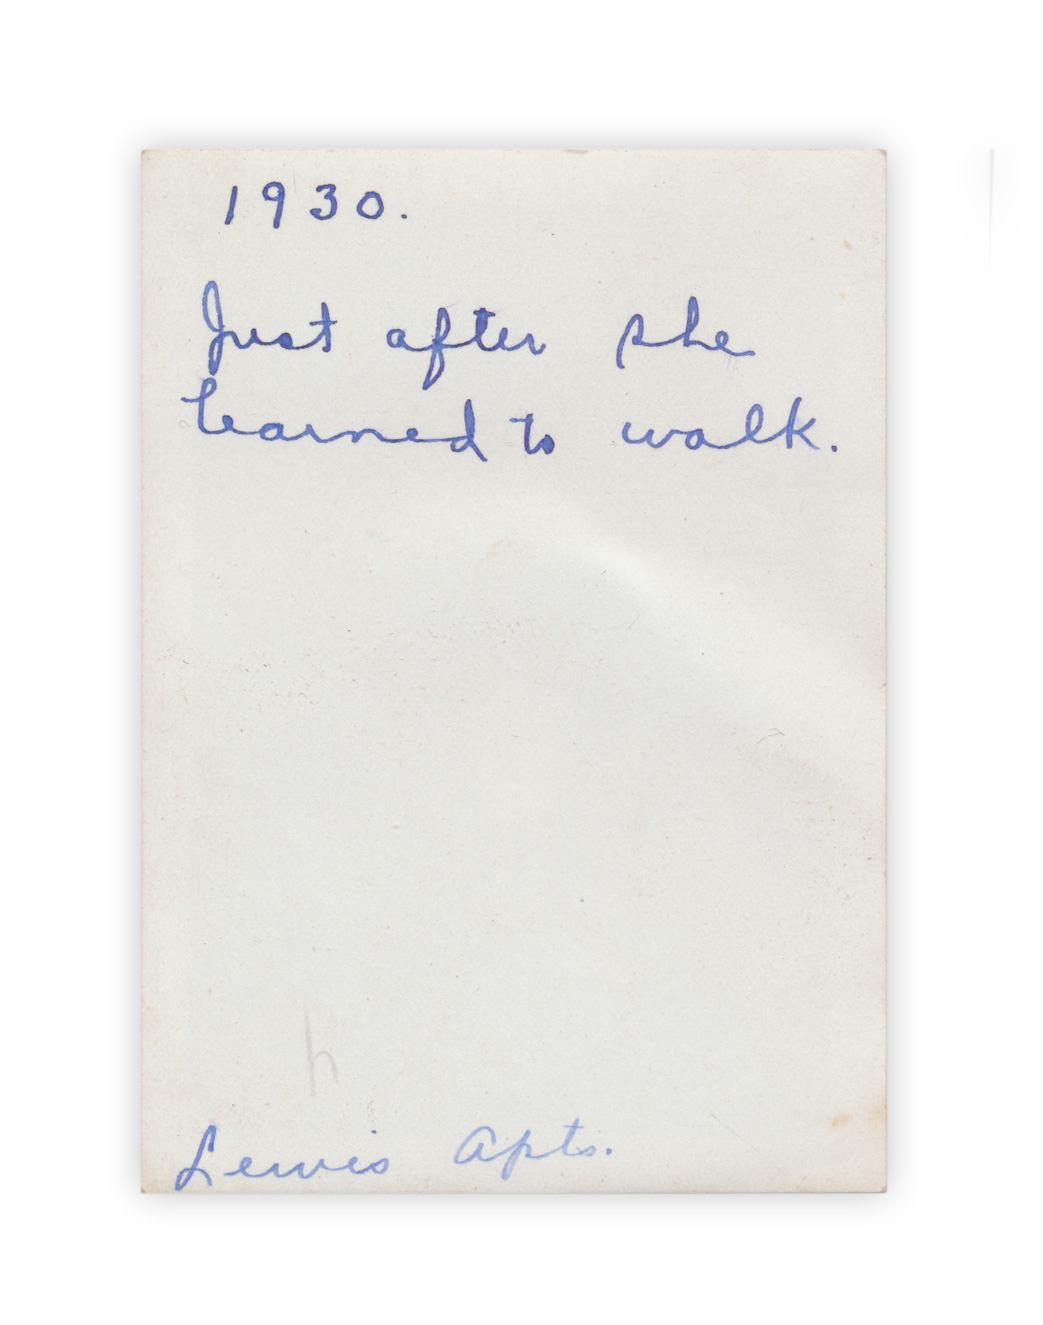 1930.
Just after she
learned to walk.
h
Lewis Apts.